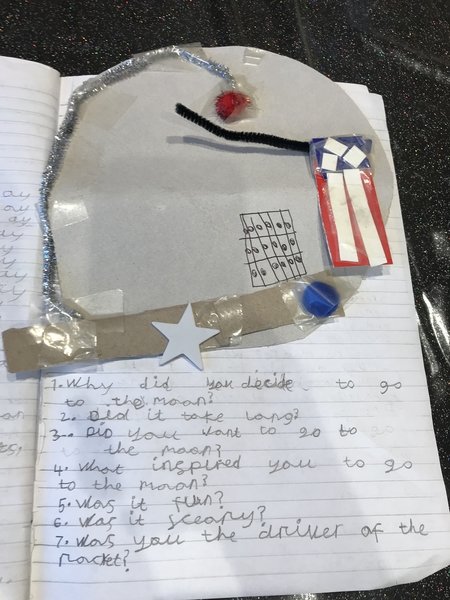 1. Why did you decide to go
to the moon?
2. Did it take long?
3. Did you want to go to
to the moon?
4. What inspired you to go
to the moon?
5. Was it fun?
6. Was it sceary?
7. Was you the driver of the
rocket?